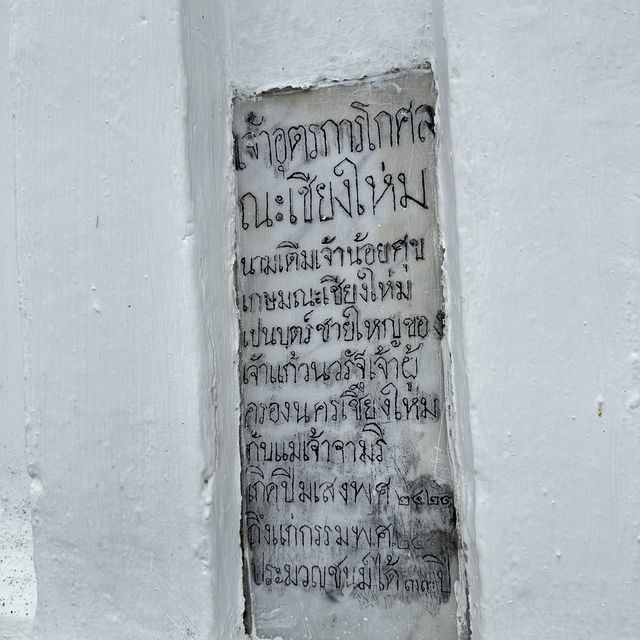 เจ้าอุตรการโกศล
ณะเชียงใหม่
นามเดิมเจ้าน้อยศุข
เกษมณะเชียงใหม่
เปนบุตร์ชายใหญ่ของ
เจ้าแก้วนวรัฐิเจ้าผู้
ครองนครเชียงใหม่
กับแม่เจ้าจามรี
เกิดปีมเสงพศ
ถึงแก่กรรมพศ
ประมวญชนม์ได้ ๓๙ ปี